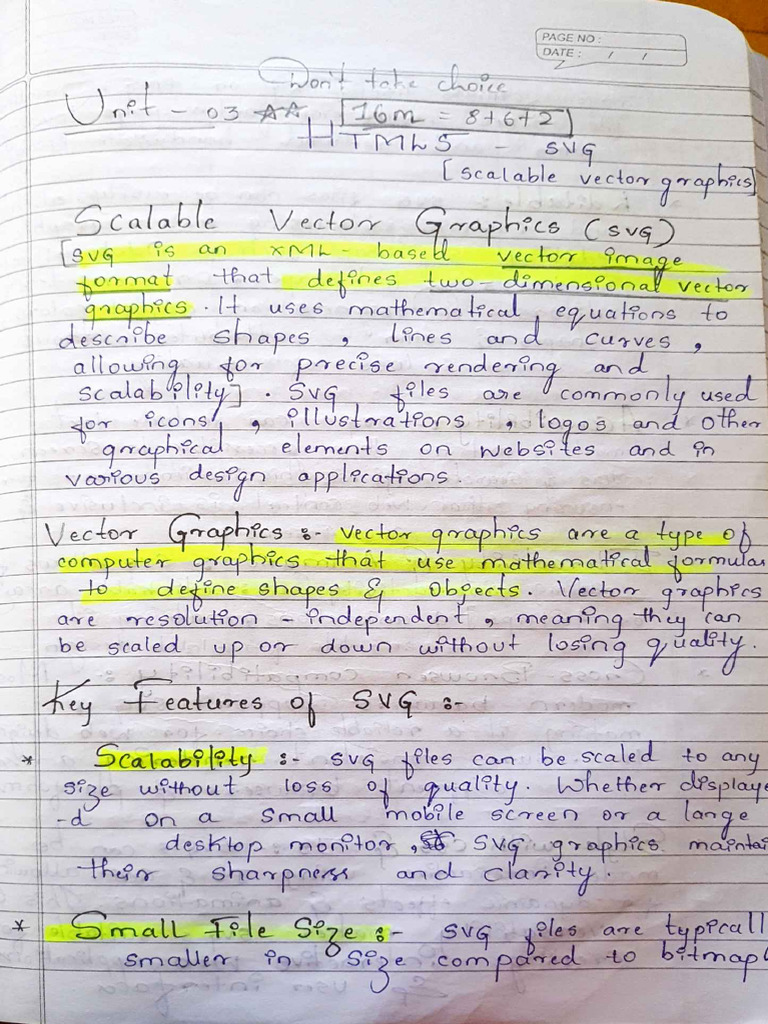 PAGE NO :
DATE : / /
Don't take choice
Unit - 03 ☆☆ 16m = 8+6+2
HTML5 - SVG
[scalable vector graphics]
Scalable Vector Graphics (SVG)
[SVG is an XML-based vector image
format that defines two-dimensional vector
graphics. It uses mathematical equations to
describe shapes, lines and curves,
allowing for precise rendering and
scalability]. SVG files are commonly used
for icons, illustrations, logos and other
graphical elements on websites and in
various design applications.
Vector Graphics :- Vector graphics are a type of
computer graphics that use mathematical formulas
to define shapes & objects. Vector graphics
are resolution - independent, meaning they can
be scaled up or down without losing quality.
Key Features of SVG :-
* Scalability :- SVG files can be scaled to any
size without loss of quality. Whether displaye
-d on a small mobile screen or a large
desktop monitor, SVG graphics maintai
their sharpness and clarity.
* Small File Size :- SVG files are typicall
smaller in size compared to bitmap